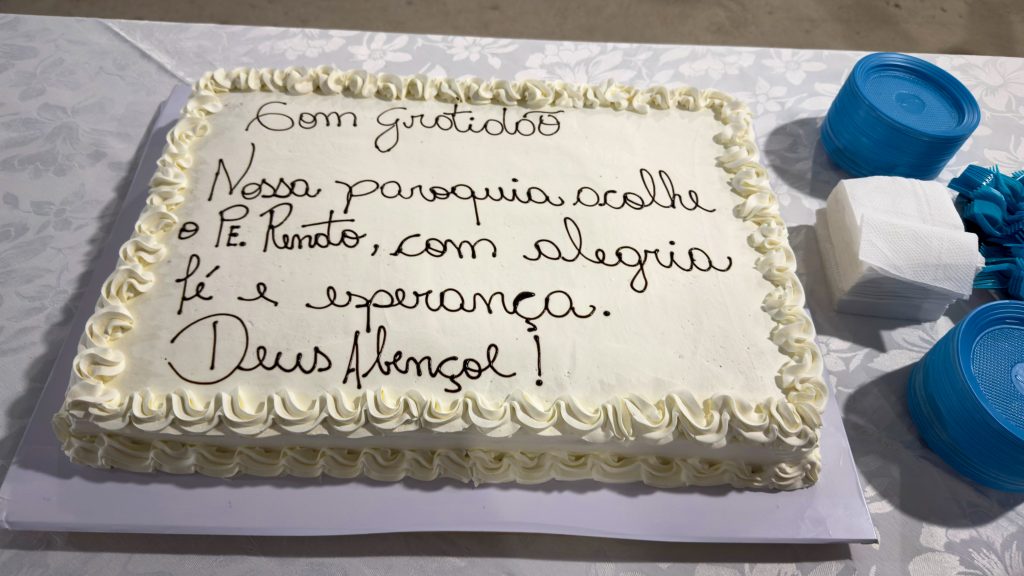 Com gratidão
Nossa paroquia acolhe
o PE. Renato, com alegria
fé e esperança.
Deus Abençoe!